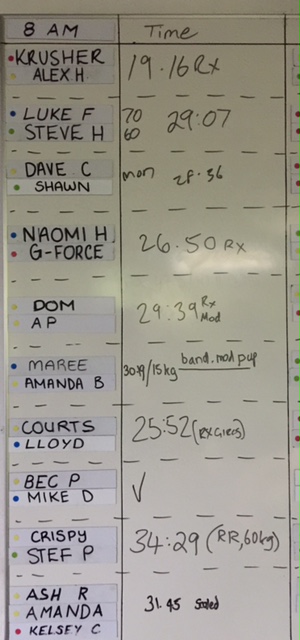 8 AM Time
KRUSHER
ALEX H 19.16 Rx
LUKE F 70
STEVE H 60 29:07
DAVE C mon 28.36
SHAWN
NAOMI H
G-FORCE 26.50 RX
DOM 29:39 Rx
AP Mod
MAREE /15kg band.mod pup
AMANDA B
COURTS 25:52
LLOYD
BEC P
MIKE D √
CRISPY 34:29 (RR, 60kg)
STEF P
ASH R
AMANDA 31.45 Scaled
KELSEY C